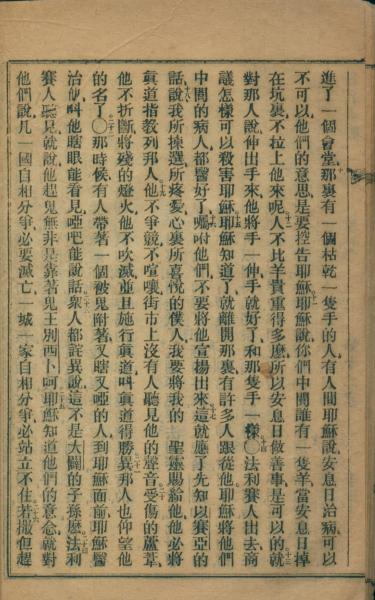 進了一個會堂那裏有一個枯乾一隻手的人有人問耶穌說安息日治病可以
不可以他們的意思是要控告耶穌耶穌說你們中間誰有一隻羊當安息日掉
在坑裏不拉上他來呢人不比羊貴重得多麽所以安息日做善事是可以的就
對那人說伸出手來他將手一伸手就好了和那隻手一樣〇法利賽人出去商
議怎樣可以殺害耶穌耶穌知道了就離開那裏有許多人跟從他耶穌將他們
中間的病人都醫好了囑咐他們不要將他宣揚出來這就應了先知以賽亞的
話說我所揀選所疼愛心裏所喜悅的僕人我要將我的 聖靈賜給他他必將
眞道指教列邦人他不爭競不喧嚷街市上沒有人聽見他的聲音受傷的蘆葦
他不折斷將殘的燈火他不吹滅並且施行眞道叫眞道得勝異邦人也仰望他
的名了〇那時候有人帶著一個被鬼附著又瞎又啞的人到耶穌面前耶穌醫
治他叫他瞎眼能看見啞吧能說話衆人都詫異說這不是大闢的子孫麽法利
賽人聽見就說他趕鬼無非是靠著鬼王別西卜呵耶穌知道他們的意念就對
他們說凡一國自相分爭必要滅亡一城一家自相分爭必站立不住若撒但趕